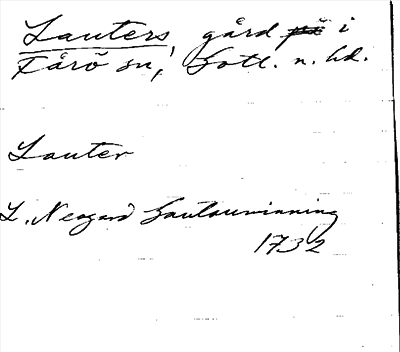 Lauters, gård på i
Fårö sn, Gotl. n. hd.
Lauter
L. Neogard Gautauminning
1732